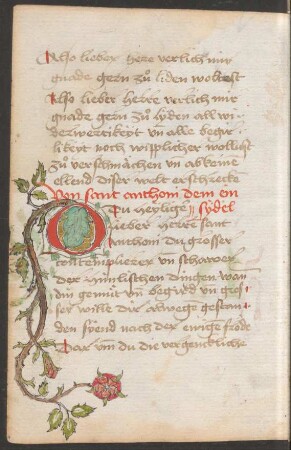 Also lieber here verlich mir
gnade gern zů liden woltest
Also lieber herre verlich mir
gnade gern zů lyden all wi
derwertikeyt vn̄ alle begir
likeyt noch wipplicher wollust
zů verschmachen vn̄ ab keine
ellend diser welt erschrecke
Von sant anthoni dem ein
Du heylige sydel
lieber herre sant
Anthoni du grosser
contemplierer vn̄ schawer
der himlischen dingen wan̄
din gemüt vn̄ begird vn̄ gros
ser wille dir alwege gesein
den syend nach der ewige frode
har vm̄ du die vergenckliche